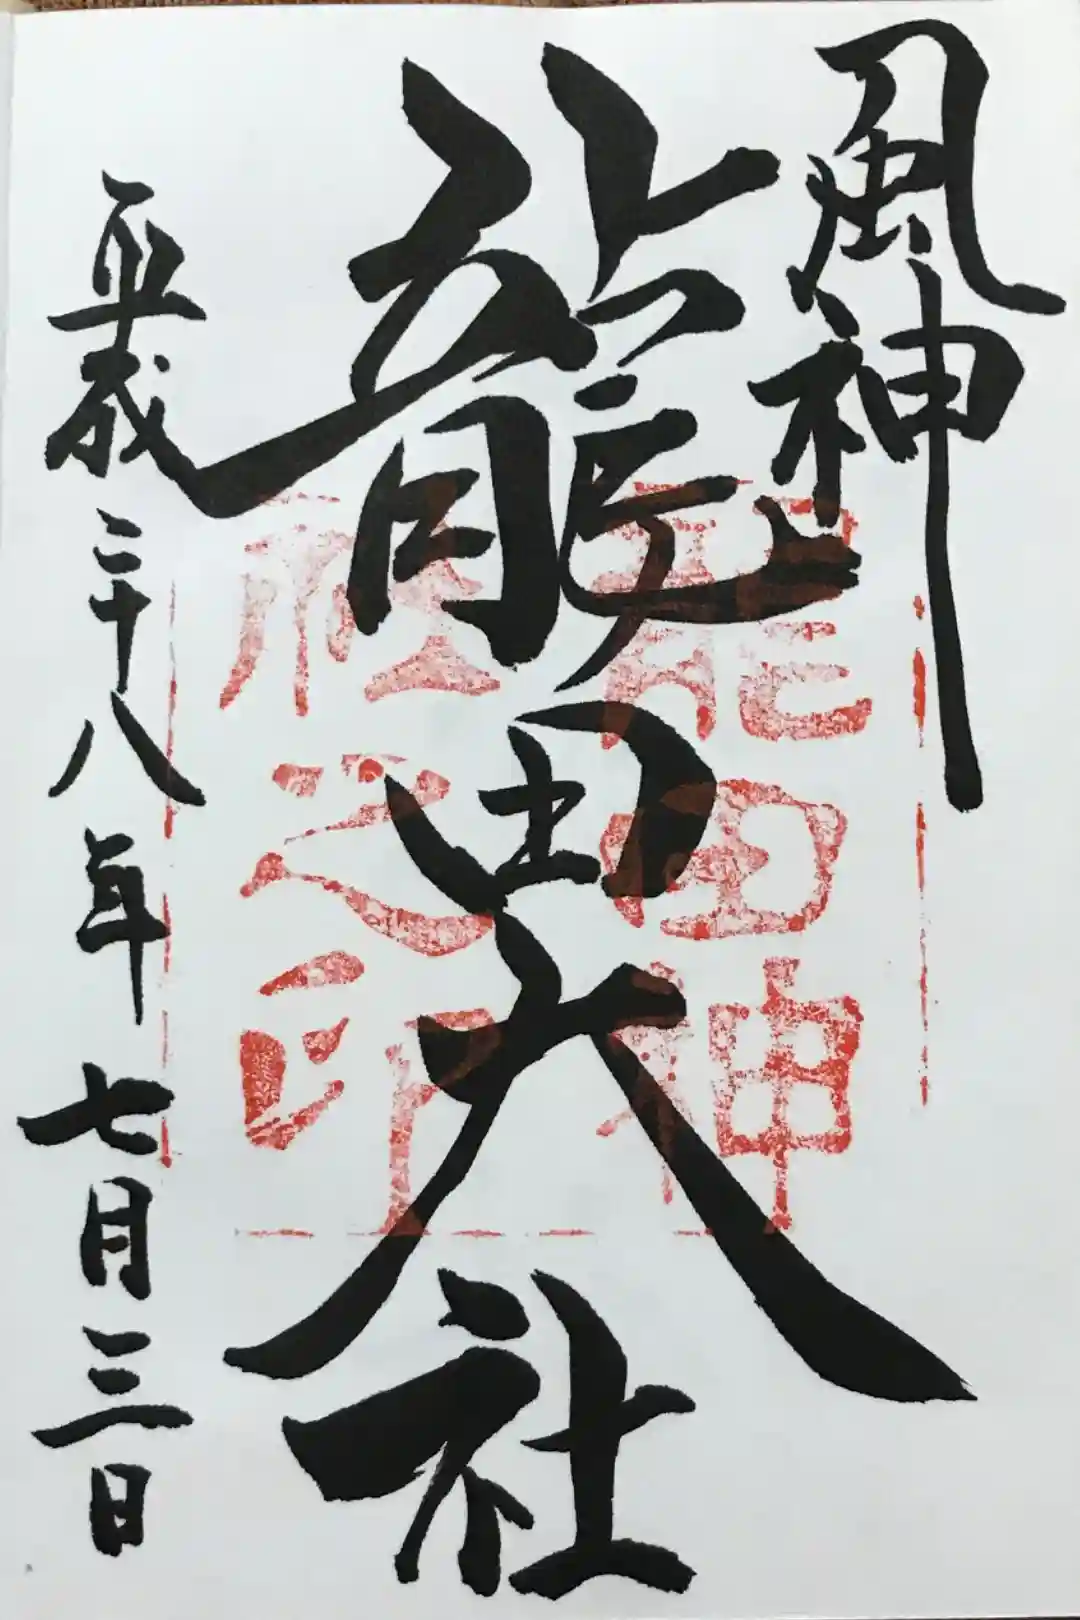 風神
龍田大社
龍田神
社之印
平成二十八年七月三日